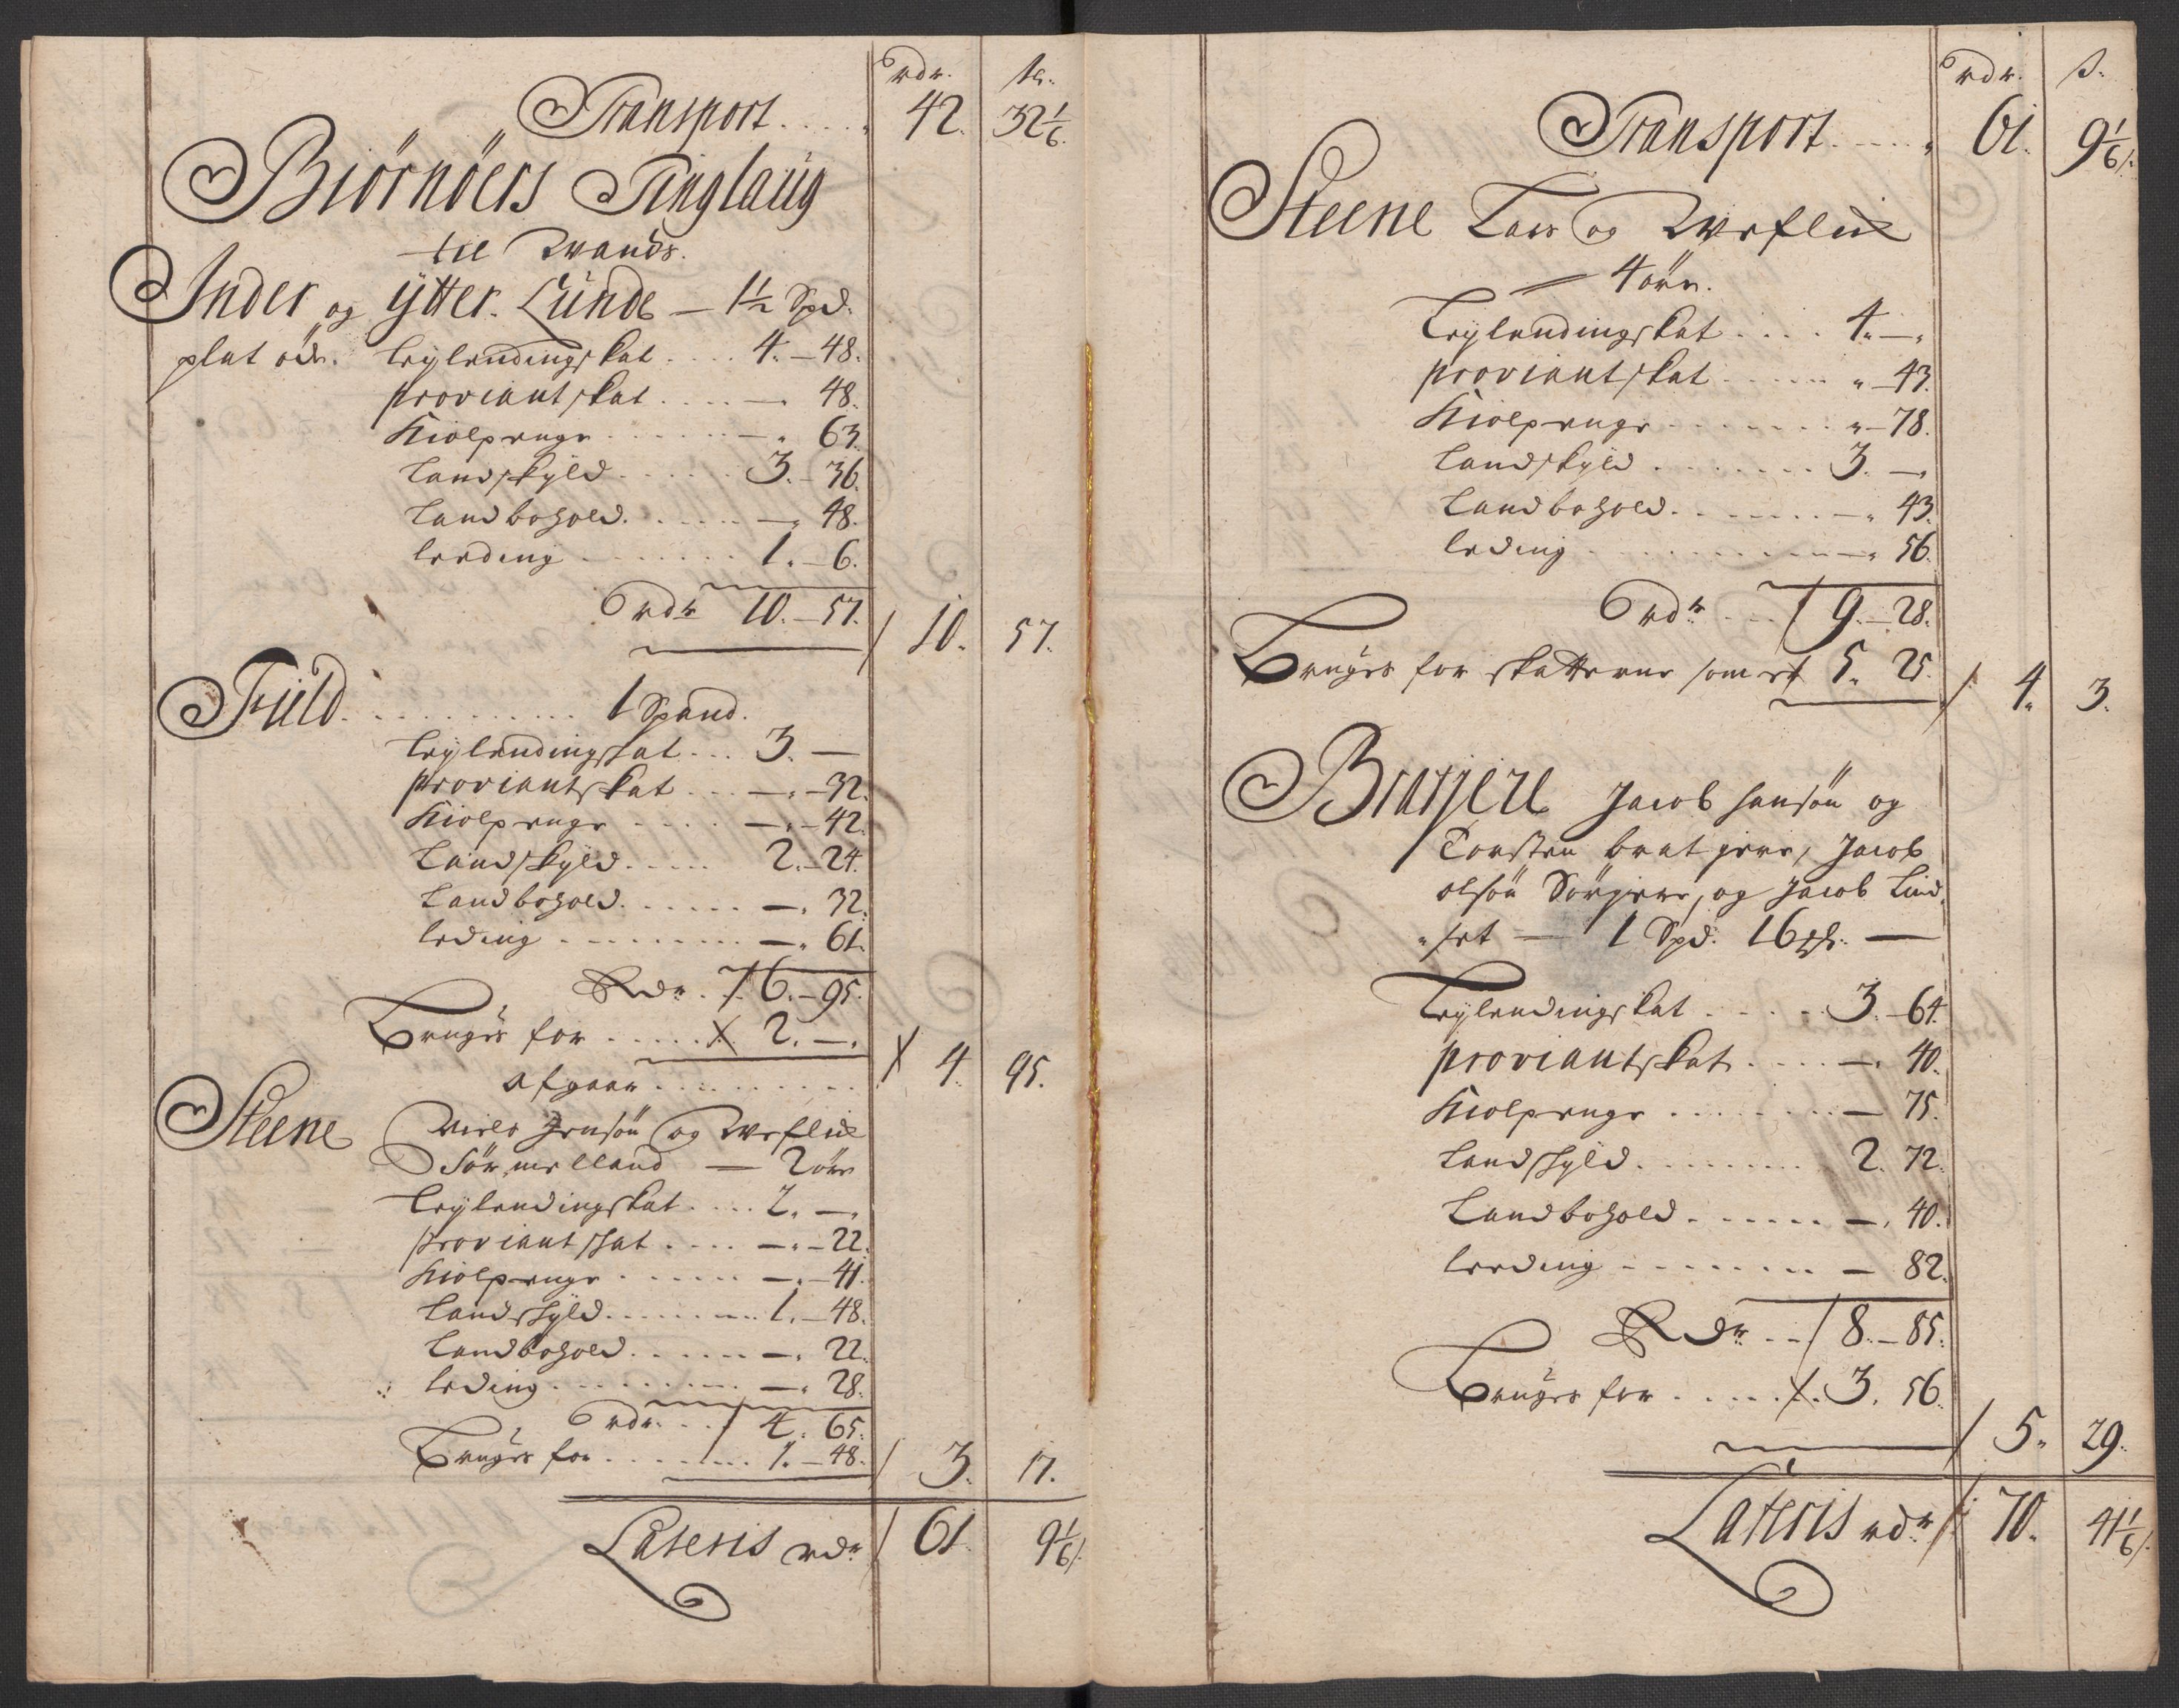 rdr. ß.
Transport..... 42. 32 1/6.
Biörnöers Tinglaüg
til
Inder og ÿtter Lünde — 1½ Spd.
plat öde. leÿlendingskat.... 4. — 48.
proviantskat.... — 48.
Kiolpenge...... — 63.
Landskÿld...... 3. — 36.
Landbohold...... — 48.
leeding........ 1. — 6.
rdr 10. — 57. / 10. 57.
Field........... 1 Spand.
leÿlendingskat... 3. —
proviantskat... — 32.
Kiolpenge.... — 42.
Landskÿld..... 2. — 24.
Landbohold...... — 32.
leding........ — 61.
Rdr. / 6. — 95.
Brugis for..... X 2. — .
afgaar......... X 4. 95.
Steene Niels Jensön og
2 ör
leÿlendingskat.... 2. — .
proviantskat.... — 22.
Kiolpenge...... — 41.
Landskÿld........ 1. — 48.
Landbohold...... — 22.
leding......... — 28.
rdr... / 4. 65.
Bruges for....... 1. — 48. / 3. 17.
Lateris rdr / 61 9 1/6
rdr. ß.
Transport..... 61. 9 1/6
Steene Lars og
— 4 ör.
Leÿlendingskat.... 4. — .
proviantskat..... — 43.
Kiolpenge...... — 78.
Landskÿld....... 3. — .
Landbohold....... — 43.
leding......... — 56.
rdr... / 9. — 28.
Bruges for skatterne som er 5. 25. / 4. 3.
Bratjere Jacob Hansön og
Torsten bratjere, Jacob
olsön Sörjere, og Jacob Lind,
,set — 1 Spd. 16 —
Leÿlendingskat.... 3. — 64.
proviantskat.... — 40.
Kiolpenge........ — 75.
Landskÿld......... 2. 72.
Landbohold...... — 40.
leeding........ — 82.
Rdr... / 8. — 85.
Bruges for..... X. 3. 56.
/ 5. 29.
Lateris rdr / 70. 41 1/6